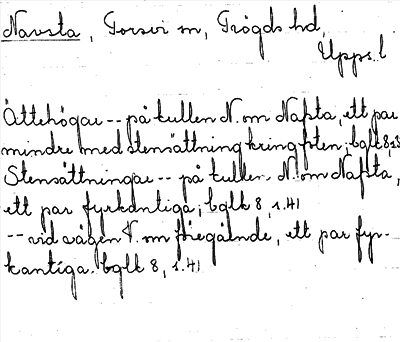 Navsta, Torsvi sn, Trögds hd,
Upps. l
Ättehögar -- på kullen N. om Nafsta, ett par
mindre med stensättning kring foten; bqlk 8, s.
Stensättningar -- på kullen N. om Nafsta,
ett par fyrkantiga; bqlk 8, s. 41
-- vid vägen V. om föregående, ett par fyr-
kantiga. bqlk 8, s. 41